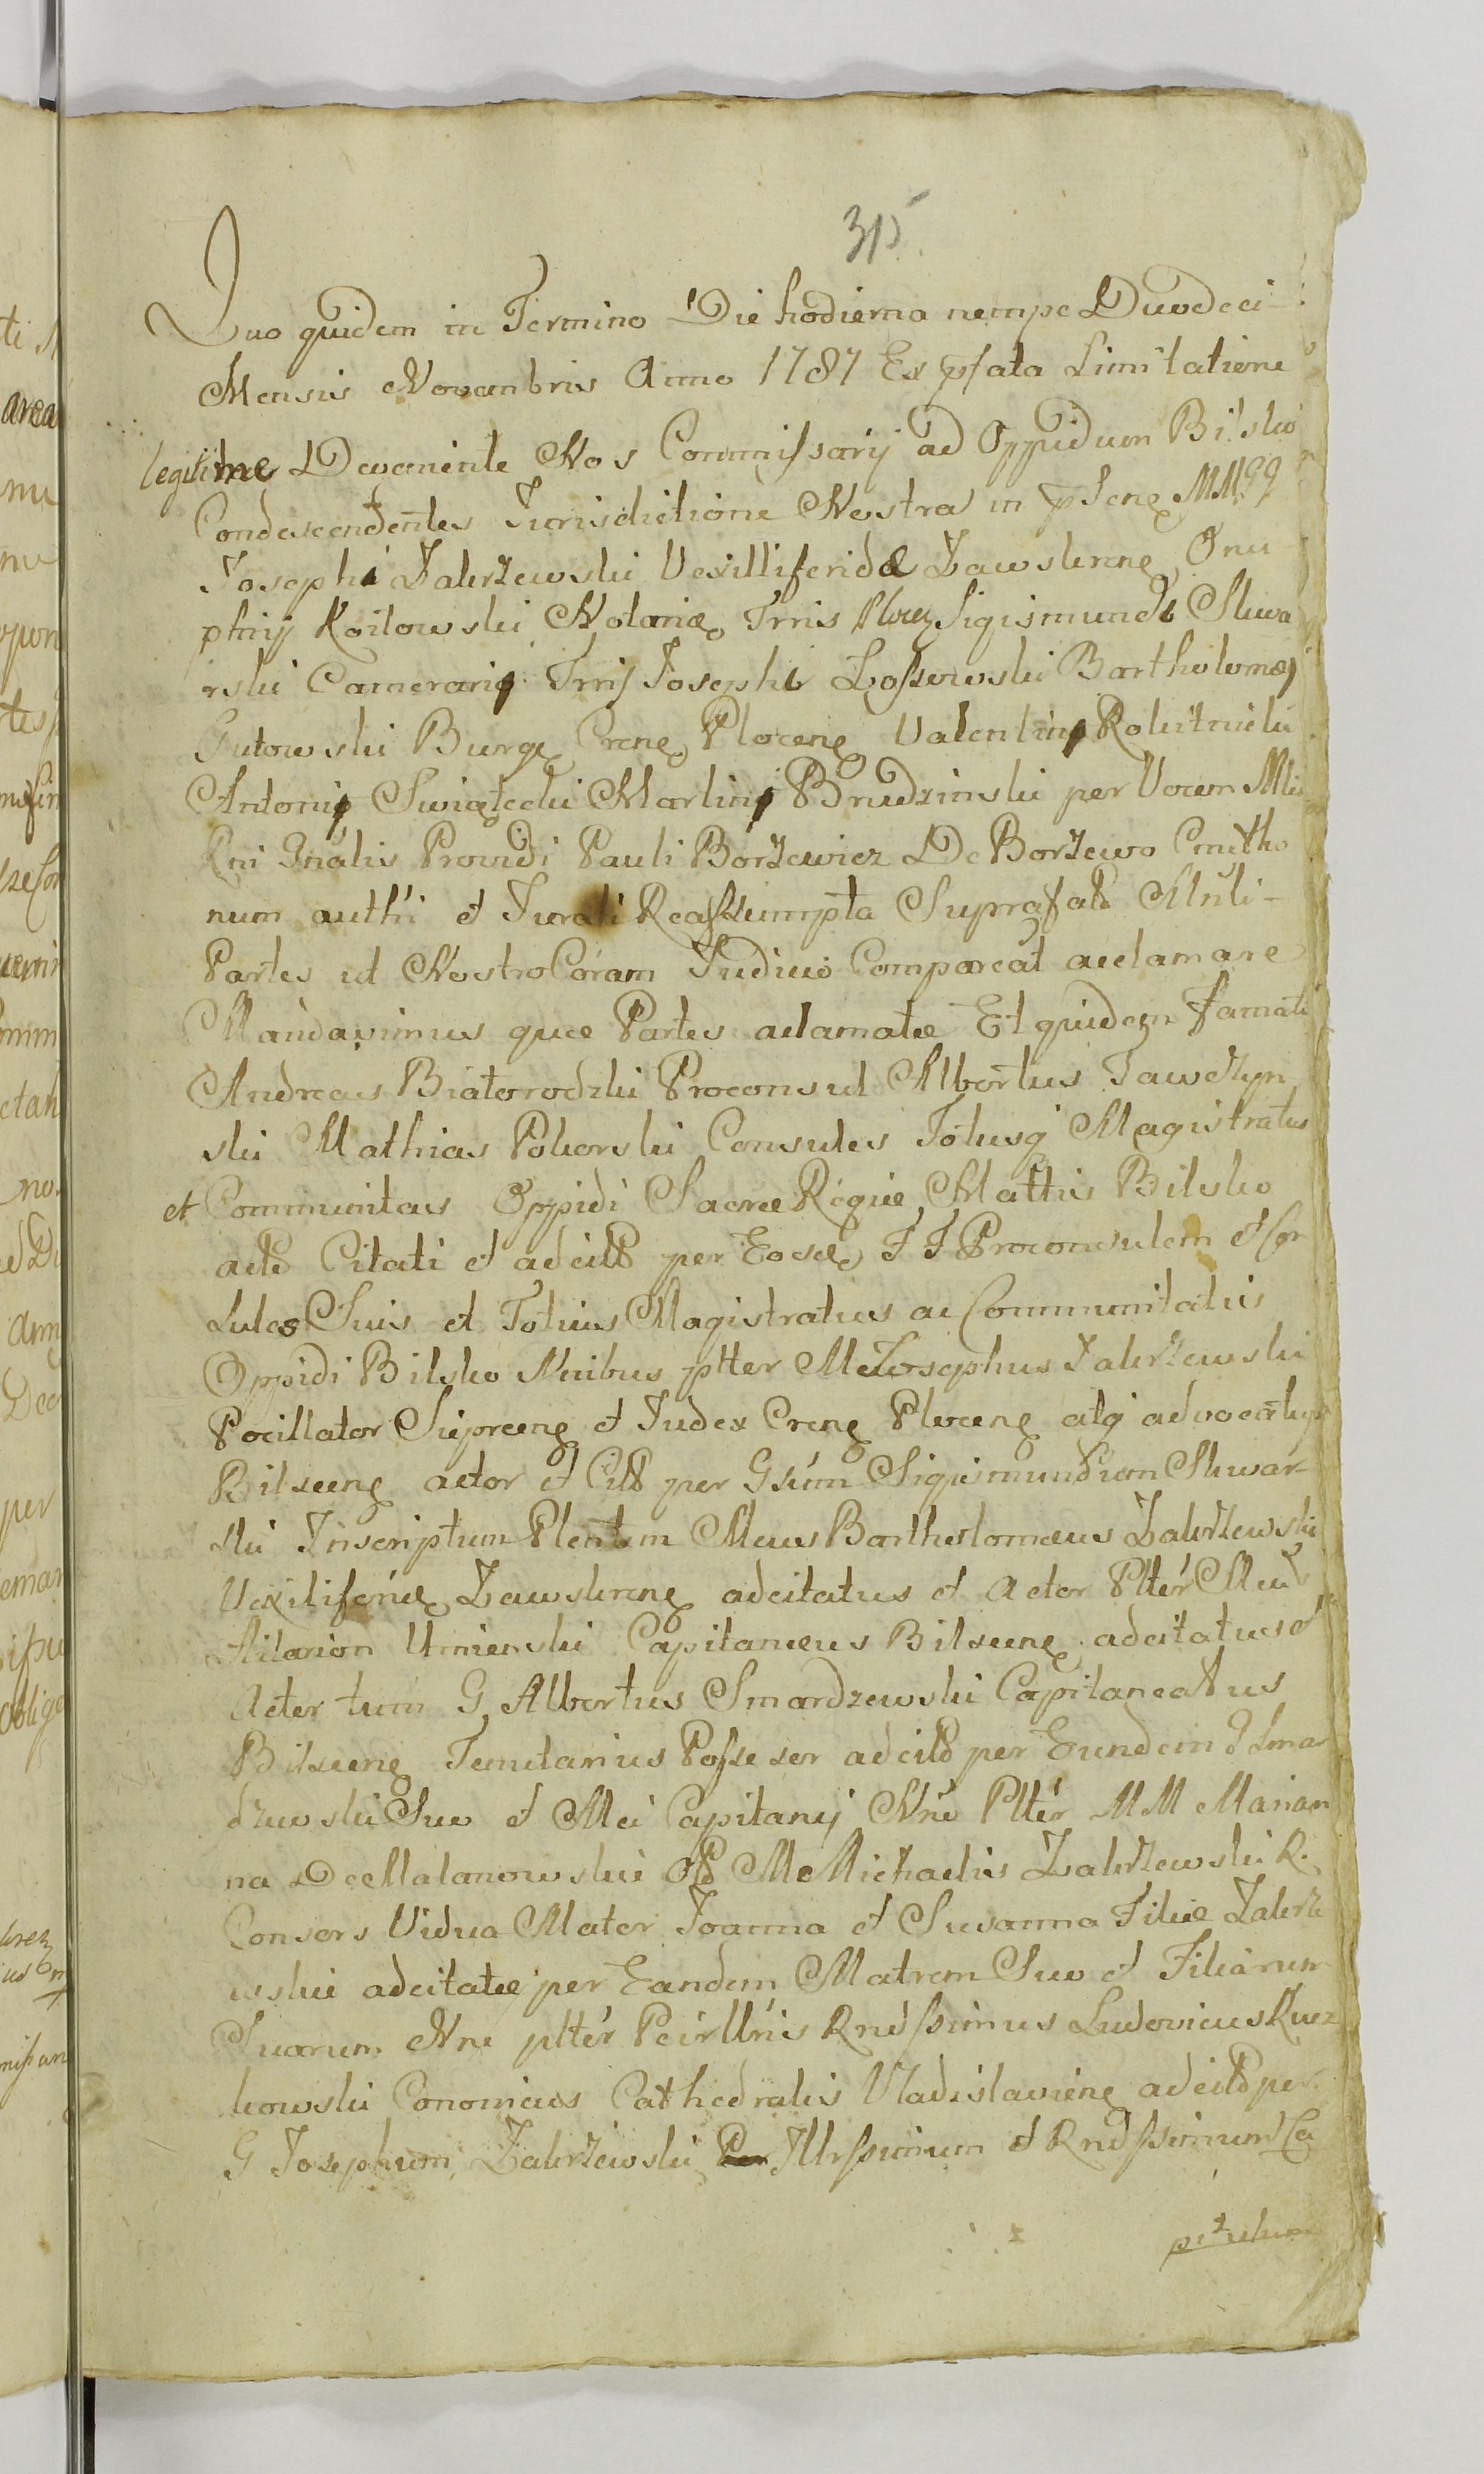 315.
Quo quidem in Termino Die hodierna nempe Duodeci-
Mensis Novembris Anno 1787 Ex pfata Limitatione
legitime Deveniente Nos Commissarij ad Oppidum Bilsko
Condescendentes Jurisdictione Nostra in pSene MMGG
Josephi Zakrzewski Vexilliferidæ Zawskrene Onu
phrij Koitowski Notariæ Trris Plocz Sigismundi Skwa
rski Camerarij Trris Josephi Lossowski Bartholomæj
Gutowski Burge Crene Plocene Valentini Rokitnicki
Antonij Swiątecki Martini Brudzinski per Vocem Mli
Rni Gnalis Providi Pauli Borzewicz De Borzewo Cmetho
num authi et Jurati Reassumpta Suprafati Aluli-
Partes ut Nostro Coram Judicio Compareat acclamare
Mandavimus quæ Partes aclamatæ Et quidem famati
Andreas Białorodzki Proconsul Albertus Jawczyn
ski Mathias Pokorski Consules Totusq Magistratus
et Communitas Oppidi Sacræ Regiæ Mattis Bilsko
acto Citati et adcitt per Eosde F F Proconsulem et Con
Sules Suis et Totius Magistratus ac Communitatis
Oppidi Bilsko Nnibus ptter Me Josephus Zakrzewski
Pocillator Sieprcene et Judex Crene Plocene atq advocatus
Bilscene actor et Citt per Gsum Sigismundum Skwar-
ski Inscriptum Plentem Meus Bartholomæus Zakrzewski
Vexiliferiæ Zawskrene adcitatus et Actor Ptter Meus
Hilarion Umienski Capitaneus Bilscene adcitatus et
Actor tum G Albertus Smardzewski Capitaneatus
Bilscene Tenutarius Possesor adcitt per Eundem G Smar
dzewski Suo et Mei Capitanij Nne Ptter MM Marian
na De Malanowskie Ott M Michaelis Zakrzewski R.
Consors Vidua Mater Joanna et Susanna Filiæ Zakrze
wskie adcitatæ per Eandem Matrem Suo et Filiarum
Suarum Nne ptter Perllris Rndssimus Ludovicus Kucz
kowski Canonicus Cathedralis Vladislaviene adcitt per
G Josephum Zakrzewski Per Illrssimum et Rndssimum Ca
pitulum